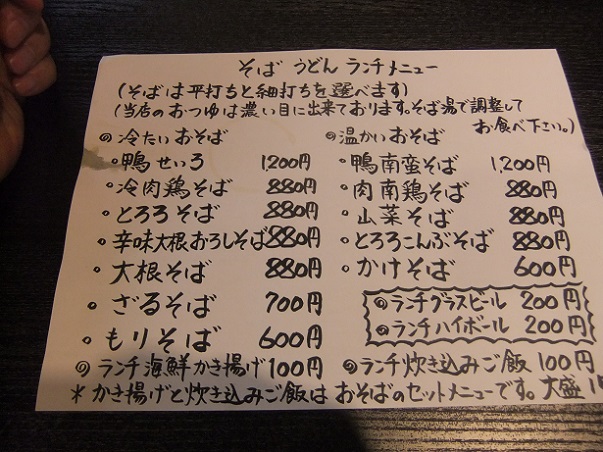 そば うどん ランチメニュー
(そばは平打ちと細打ちを選べます)
(当店のおつゆは濃い目に出来ております。そば湯で調整して
お食べ下さい。)
◎冷たいおそば
・鴨せいろ 1,200円
・冷肉鶏そば 880円
・とろろそば 880円
・辛味大根おろしそば 880円
・大根そば 880円
・ざるそば 700円
・もりそば 600円
◎温かいおそば
・鴨南蛮そば 1,200円
・肉南鶏そば 880円
・山菜そば 880円
・とろろこんぶそば 880円
・かけそば 600円
◎ランチグラスビール 200円
◎ランチハイボール 200円
◎ランチ海鮮かき揚げ 100円 ◎ランチ炊き込みご飯 100円
*かき揚げと炊き込みご飯はおそばのセットメニューです。大盛